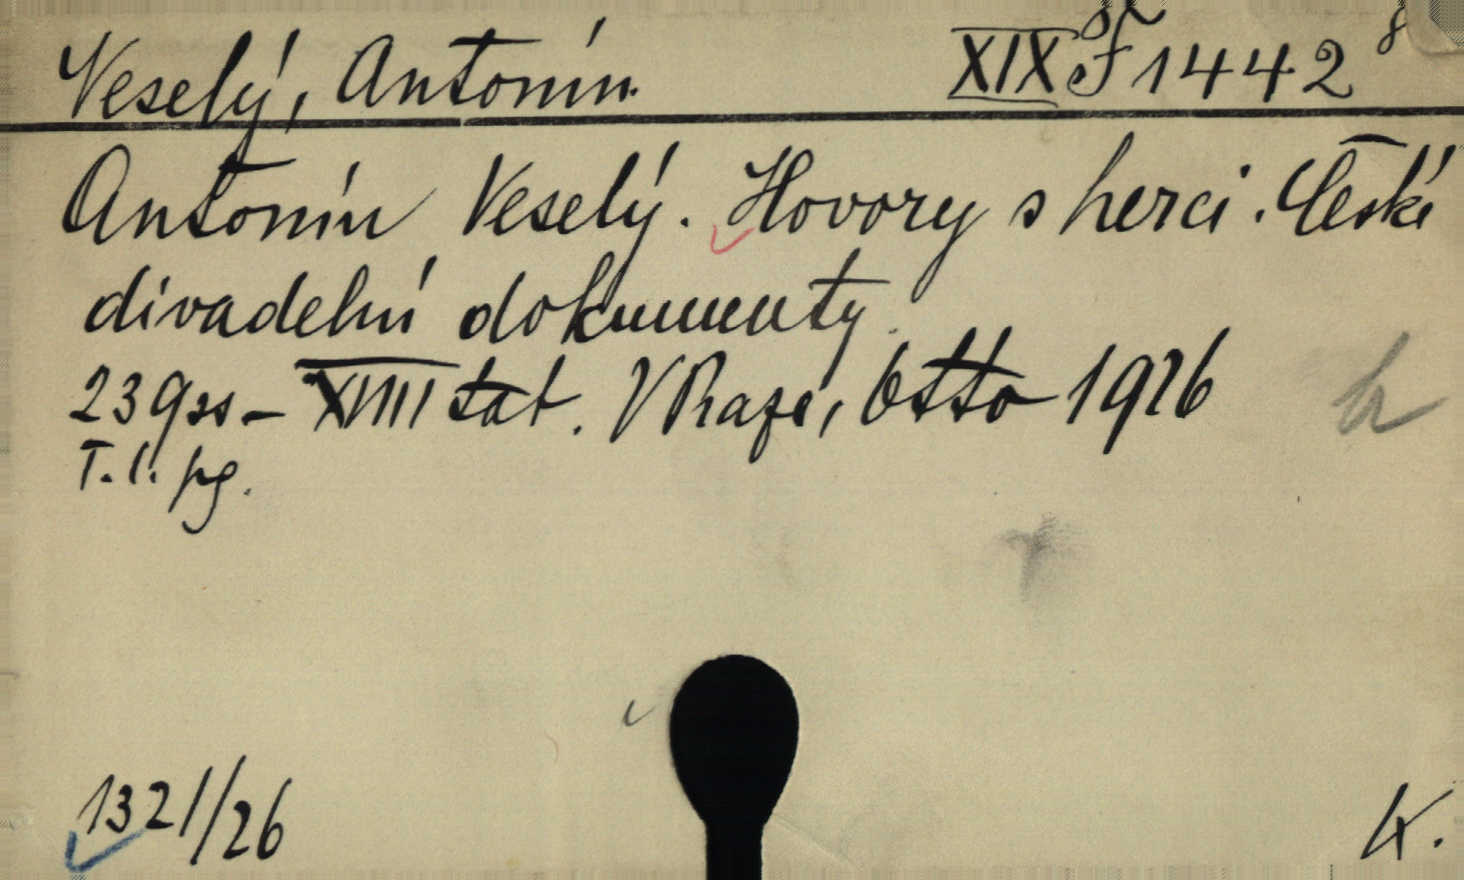 Veselý, Antonín. XIX F 1442 8
Antonín Veselý. Hovory s herci. České
divadelní dokumenty.
239 ss - XVIII tab. V Praze, Otto 1926
T. l. pg.
1321/26 K.